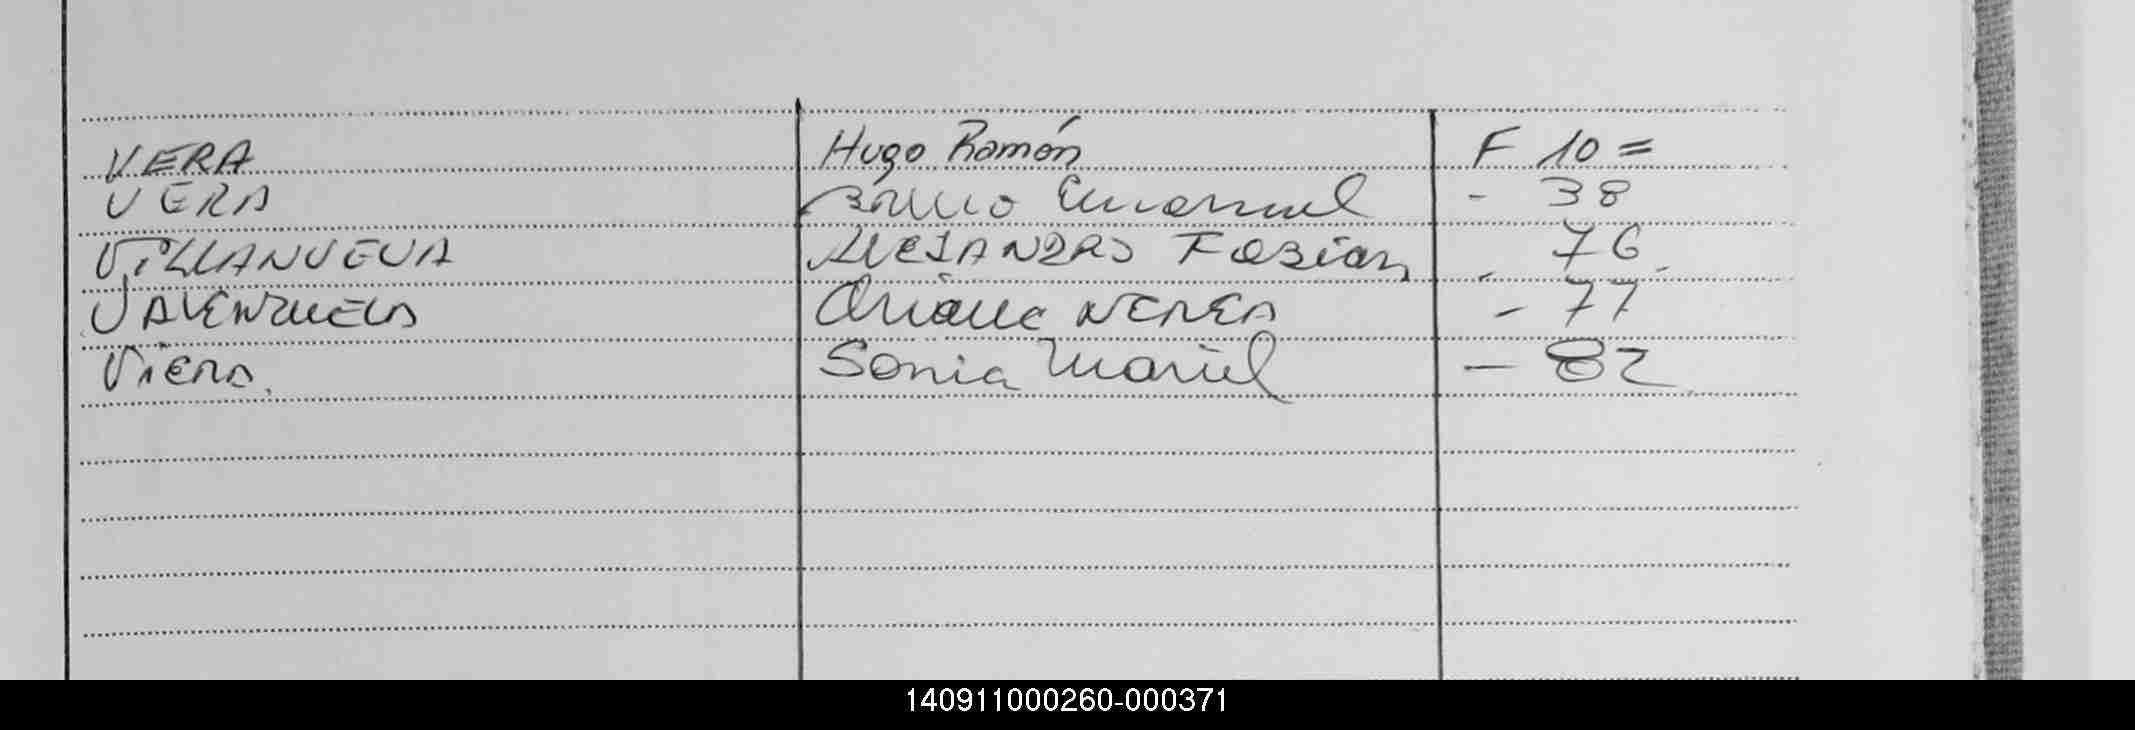 VERA Hugo Ramón F 10 =
VERA Bruno Emanuel - 38
VILLANUEVA ALEJANDRO Fabian - 76
VALENZUELA NEREA - 77
Viera. Sonia Mariel - 82
140911000260-000371